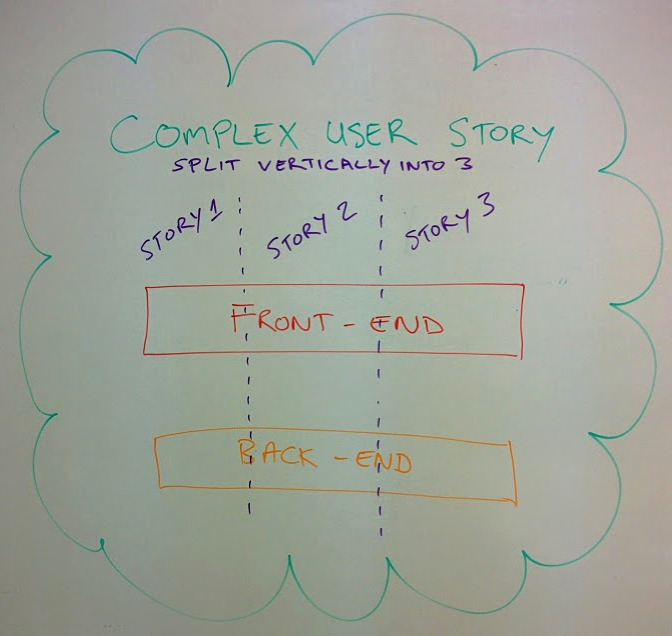 COMPLEX USER STORY
SPLIT VERTICALLY INTO 3
STORY 1
STORY 2
STORY 3
FRONT - END
BACK - END